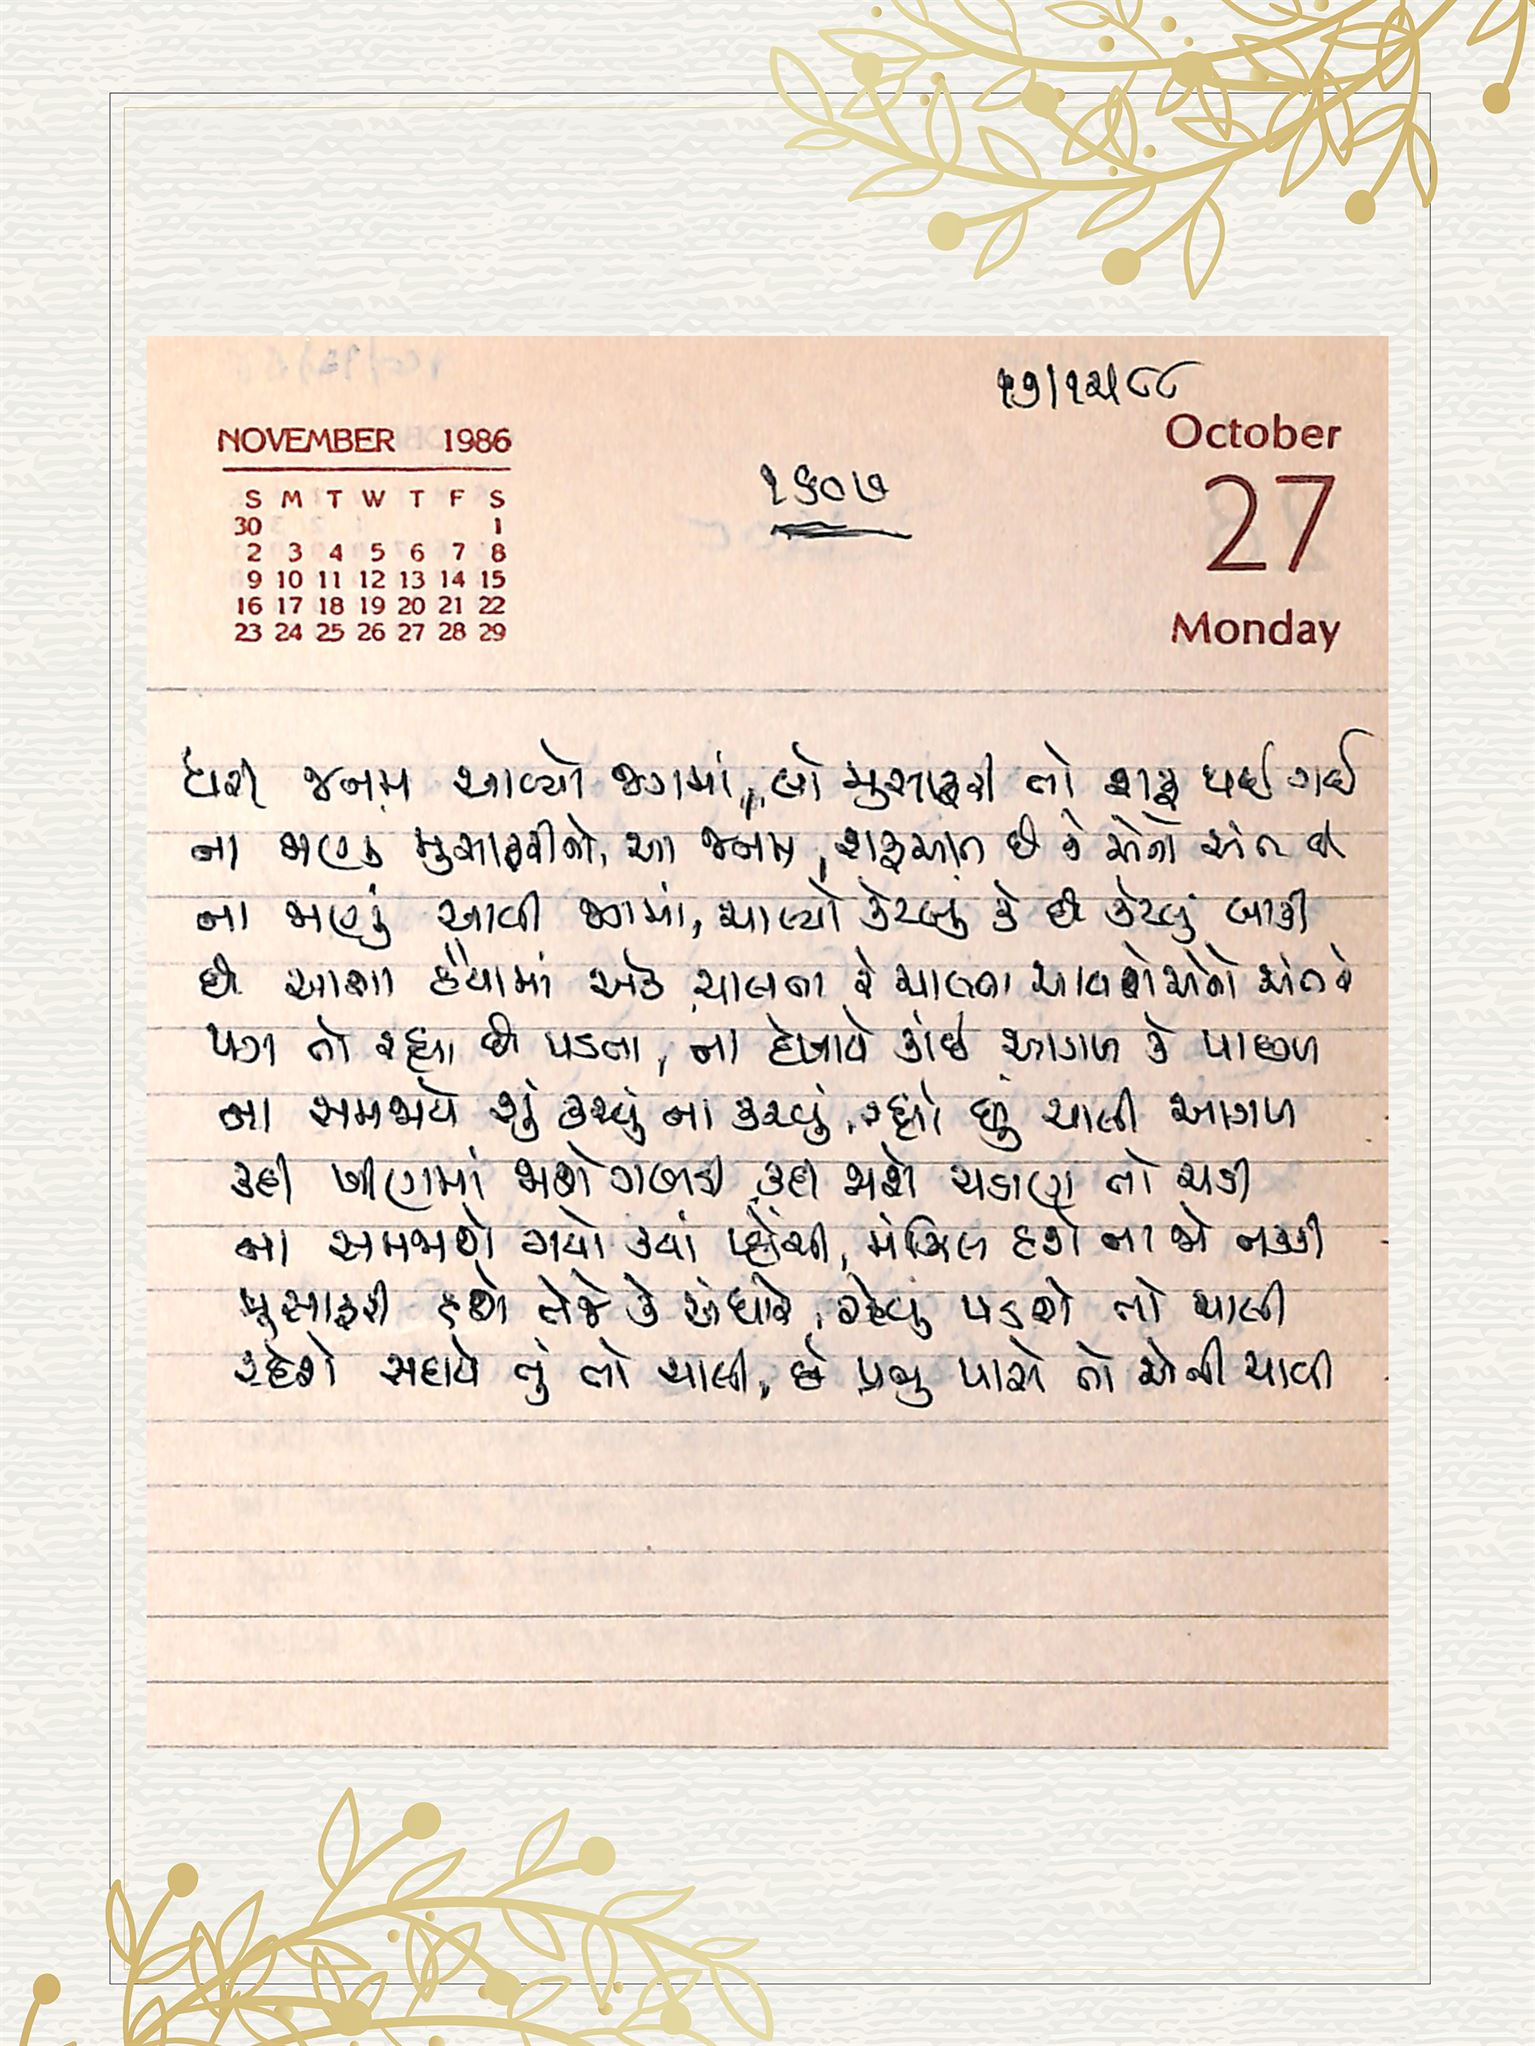 ૧૭/૧૨/૮૮
NOVEMBER 1986
S M T W T F S
30 1
2 3 4 5 6 7 8
9 10 11 12 13 14 15
16 17 18 19 20 21 22
23 24 25 26 27 28 29
૧૬૦૭
October
27
Monday
ધરી જનમ આવ્યો જગમાં, જ્યાં મુસાફરી તો શરૂ થઈ ગઈ
ના જાણું મુસાફરીનો, આ જનમ, શરૂઆત છે કે એનો અંત છે
ના જાણું આવી જગમાં, ચાલ્યો કેટલું કે છે કેટલું બાકી
છે આશા હૈયામાં એક ચાલતા રે ચાલતા આવશે એનો અંત રે
પગ તો રહ્યા છે પડતા, ના દેખાયે કાંઈ આગળ કે પાછળ
ના સમજાયે શું કરવું ના કરવું, રહ્યો છું ચાલી આગળ
કદી ખીણમાં જાશે ગબડી, કદી જાશે ચડાણ તો ચડી
ના સમજાશે ગયો ક્યાં પ્હોંચી, મંઝિલ હશે ના જો નક્કી
મુસાફરી હશે તેજે કે અંધારે, રહેવું પડશે તો ચાલી
રહેશે સદાયે તું તો ચાલી, છે પ્રભુ પાસે તો એની ચાવી